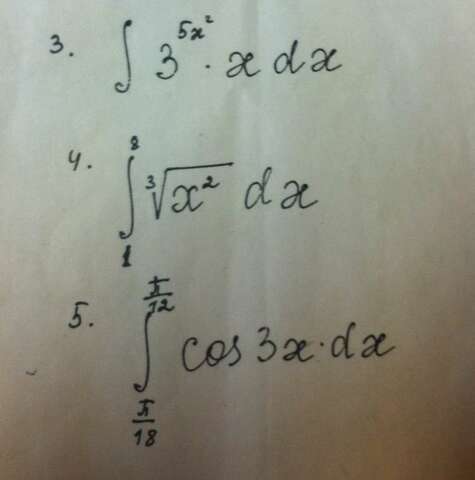 3. ∫ 3^{5x²} · x dx
4. ∫₁⁸ ∛(x²) dx
5. ∫_{π/18}^{π/12} cos 3x · dx